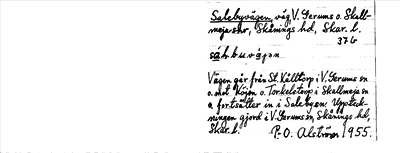 Salebyvägen, väg, V. Gerums o. Skall-
meja snr, Skånings hd, Skar. l.
376
sá̀hbuvä́gən
Vägen går från St. Kålltorp i V. Gerums sn
o. mot Kojen o. Torkelstorp i Skallmeja sn
o. fortsätter in i Saleby sn. Uppteck-
ningen gjord i V. Gerums sn, Skånings hd,
Skar. l.
P.O. Alström 1955.